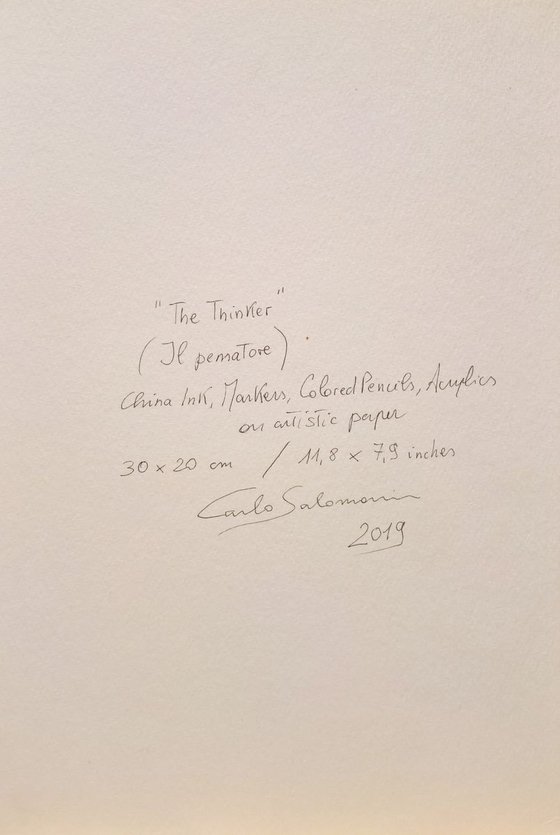 "The Thinker"
(Il pensatore).
China Ink, Markers, Colored Pencils, Acrylics
on artistic paper
30 x 20 cm / 11,8 x 7,9 inches
Carlo Salomoni
2019